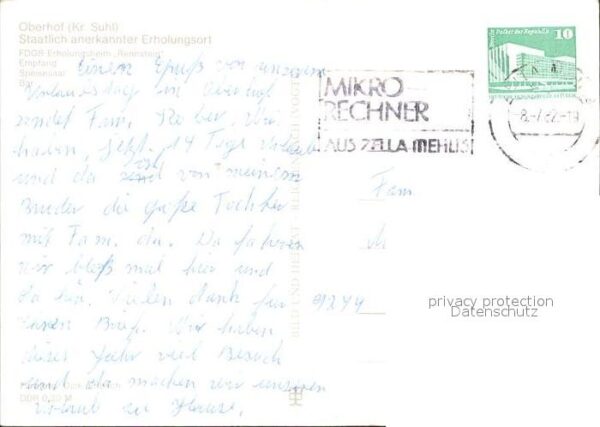 Oberhof (Kr. Suhl)
Staatlich anerkannter Erholungsort
FDGB-Erholungsheim „Rennsteig“
Empfang
Speisesaal
Bar
Einen Gruß von unserem
Urlaubstag in Oberhof
sendet Fam.
haben, jetzt 14 Tage Urlaub
und da ist von meinem
Bruder die große Tochter
mit Fam. da. Da fahren
wir bloß mal hier und
da hin. Vielen dank für
Ihren Brief. Wir haben
dieses Jahr viel Besuch
und da machen wir unseren
Urlaub zu Hause.
DDR 0,20 M
BILD UND HEIMAT REICHENBACH
MIKRO-
RECHNER
AUS ZELLA-MEHLIS
10
-8.-7.82-19
Fam.
9244
privacy protection
Datenschutz